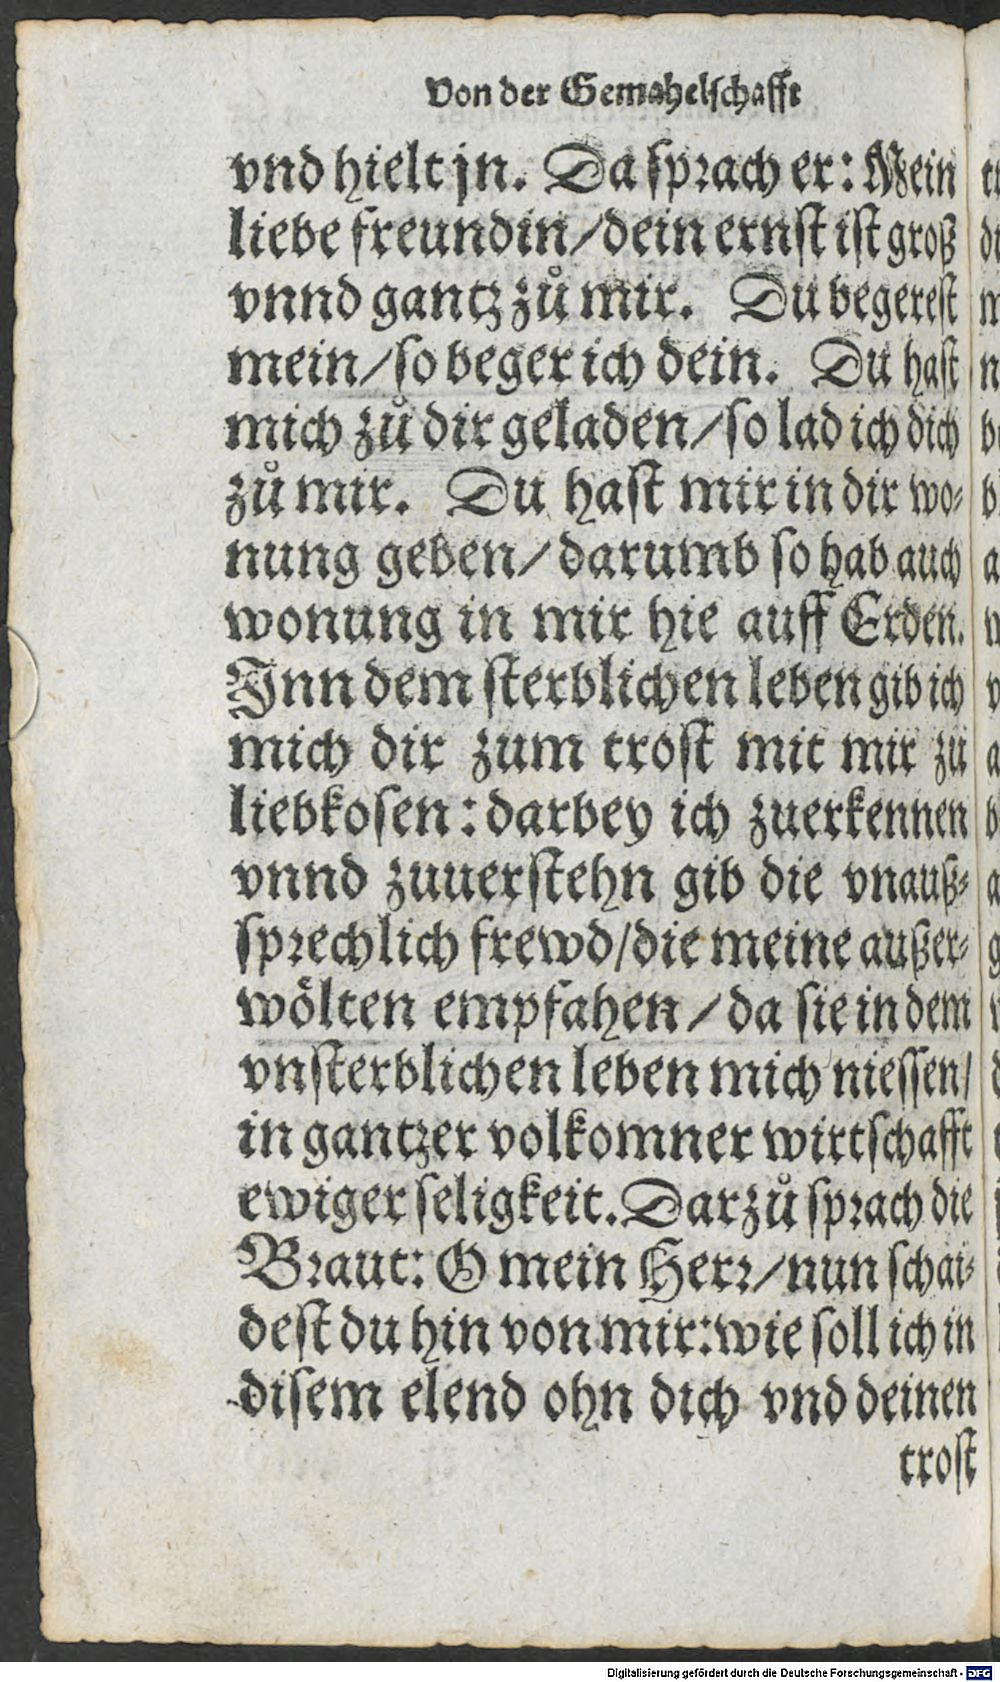 Von der Gemahelschafft
vnd hielt jn. Da sprach er: Mein
liebe freundin/dein ernst ist groß
vnnd gantz zuͦ mir. Du begerest
mein/so beger ich dein. Du hast
mich zuͦ dir geladen/so lad ich dich
zuͦ mir. Du hast mir in dir wo⸗
nung geben/darumb so hab auch
wonung in mir hie auff Erden.
Inn dem sterblichen leben gib ich
mich dir zum trost mit mir zu
liebkosen: darbey ich zuerkennen
vnnd zuuerstehn gib die vnauß⸗
sprechlich frewd/die meine außer⸗
wölten empfahen/da sie in dem
vnsterblichen leben mich niessen/
in gantzer volkomner wirtschafft
ewiger seligkeit. Darzuͦ sprach die
Braut: O mein Herr/nun schai⸗
dest du hin von mir: wie soll ich in
disem elend ohn dich vnd deinen
trost
Digitalisierung gefördert durch die Deutsche Forschungsgemeinschaft - DFG